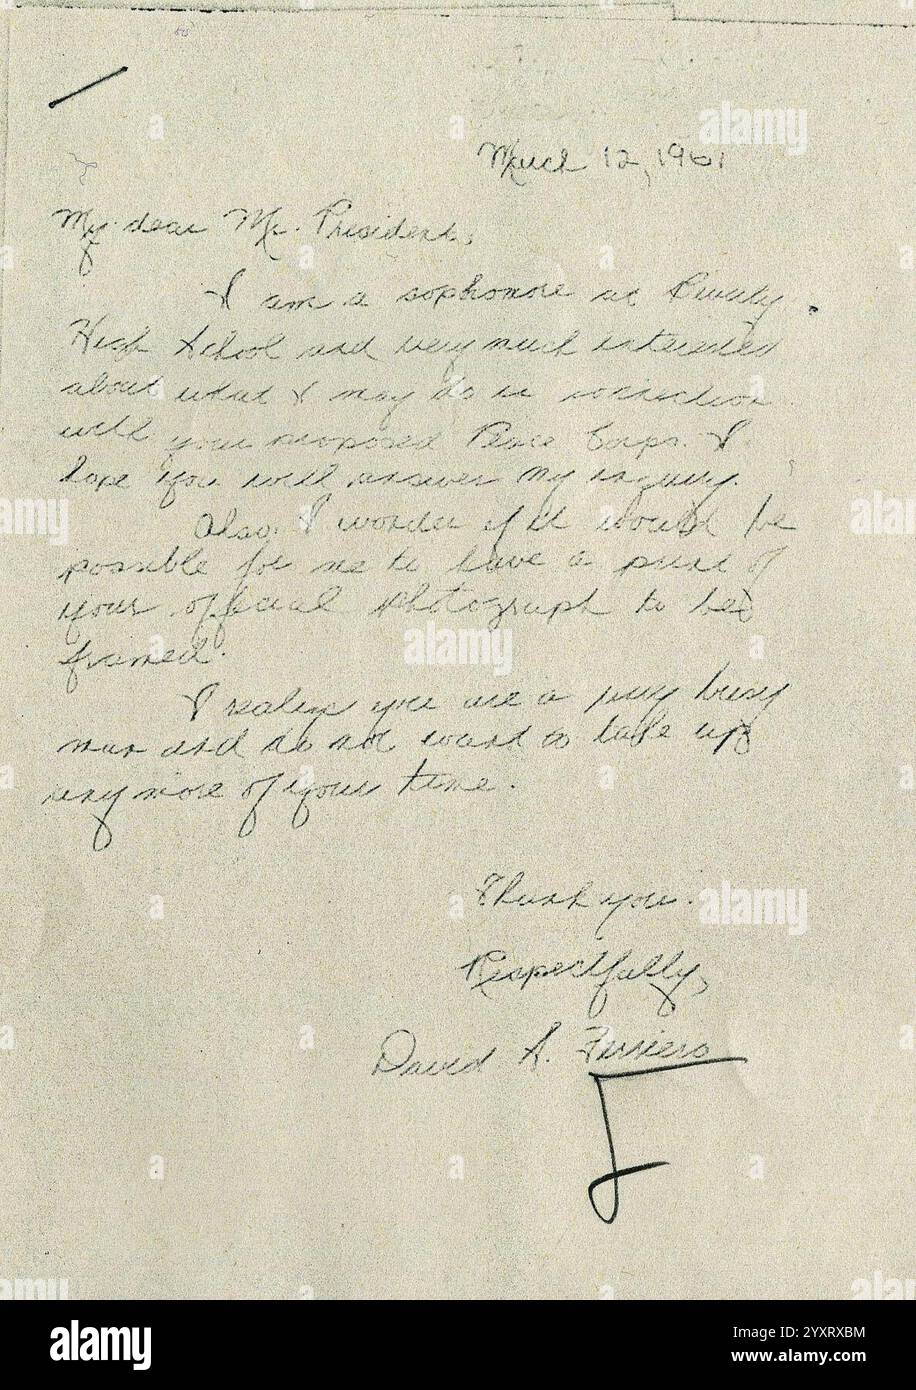 March 12, 1961
My dear Mr. President,
I am a sophomore at Beverly
High School and very much interested
about what I may do in connection
with your proposed Peace Corps. I
hope you will answer my inquiry.
Also, I wonder if it would be
possible for me to have a print of
your official photograph to be
framed.
I realize you are a very busy
man and do not want to take up
any more of your time.
Thank you.
Respectfully,
David S. Ferriero
alamy
Image ID: 2YXRXBM
www.alamy.com